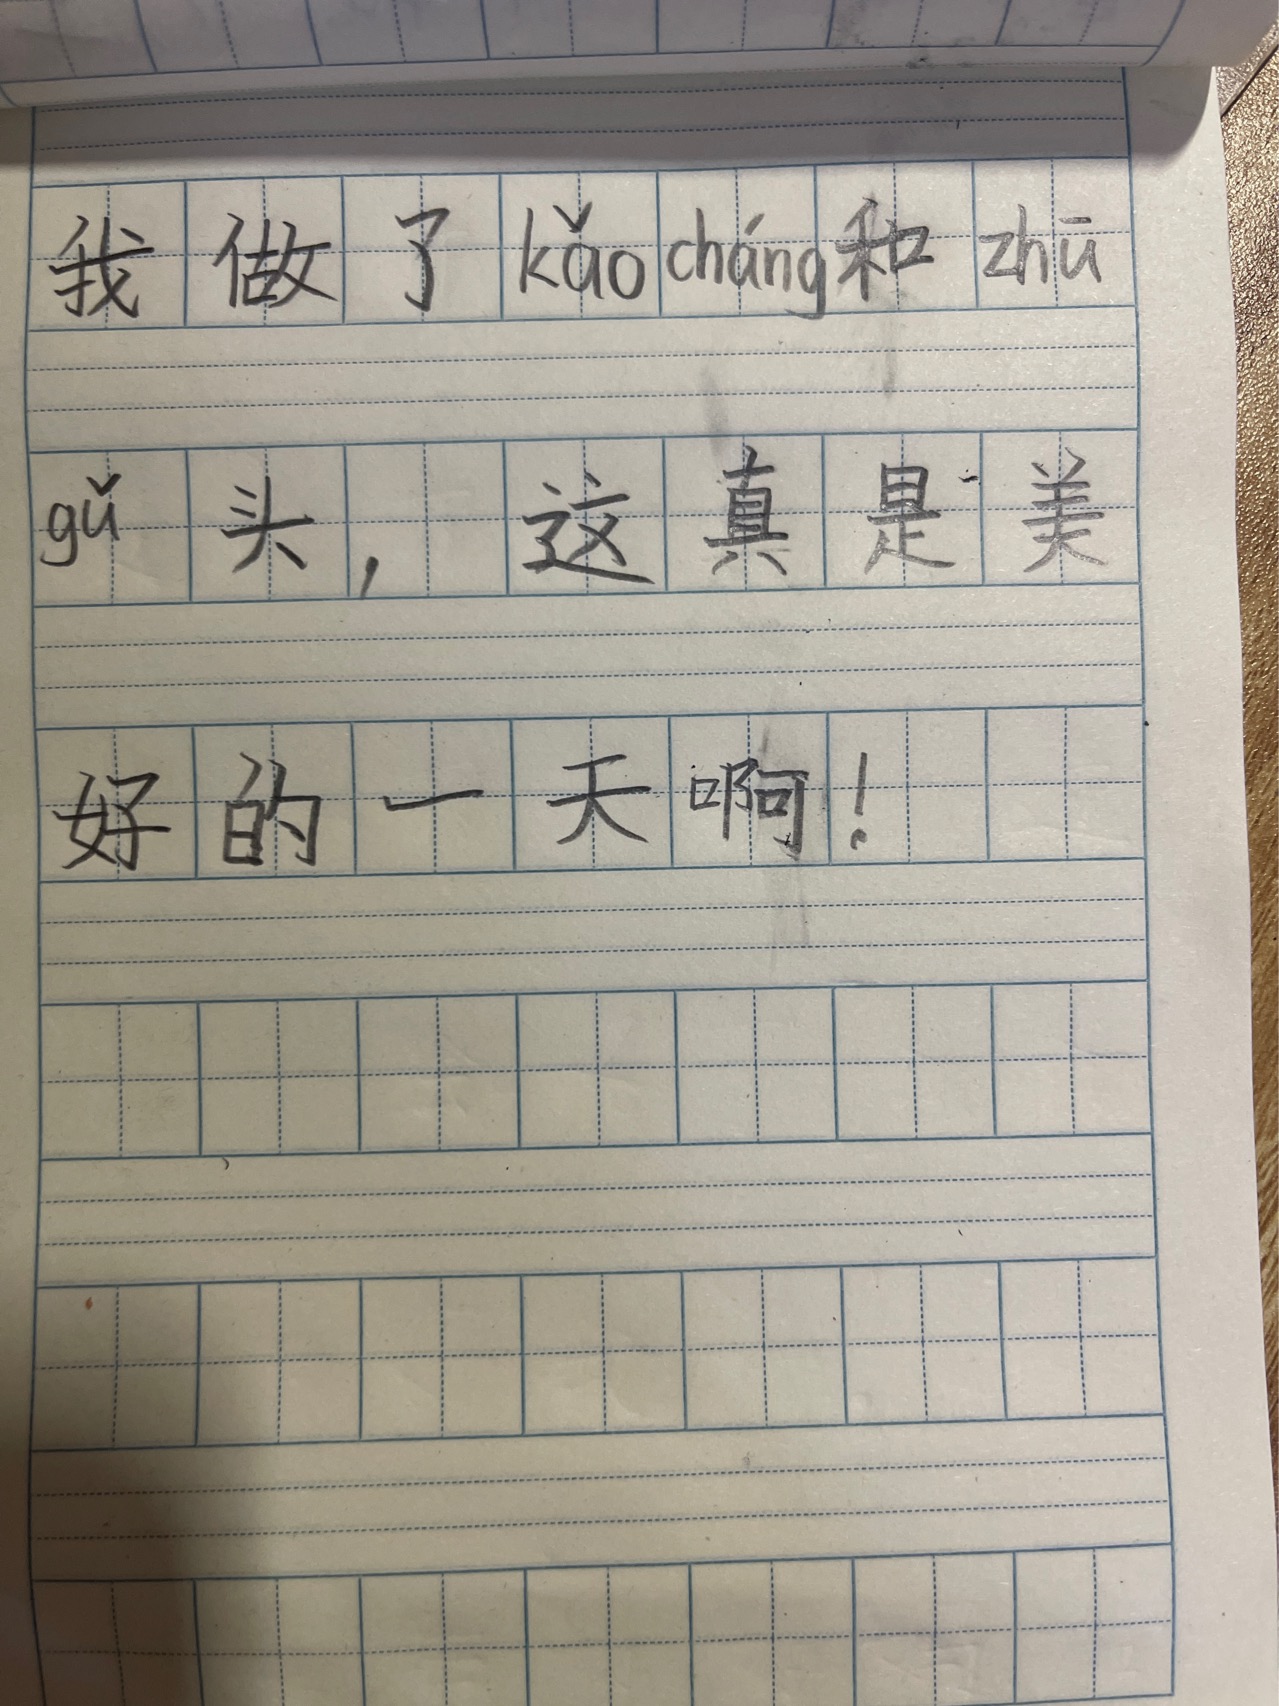 我做了kǎo cháng和zhū
gǔ头，这真是美
好的一天啊！